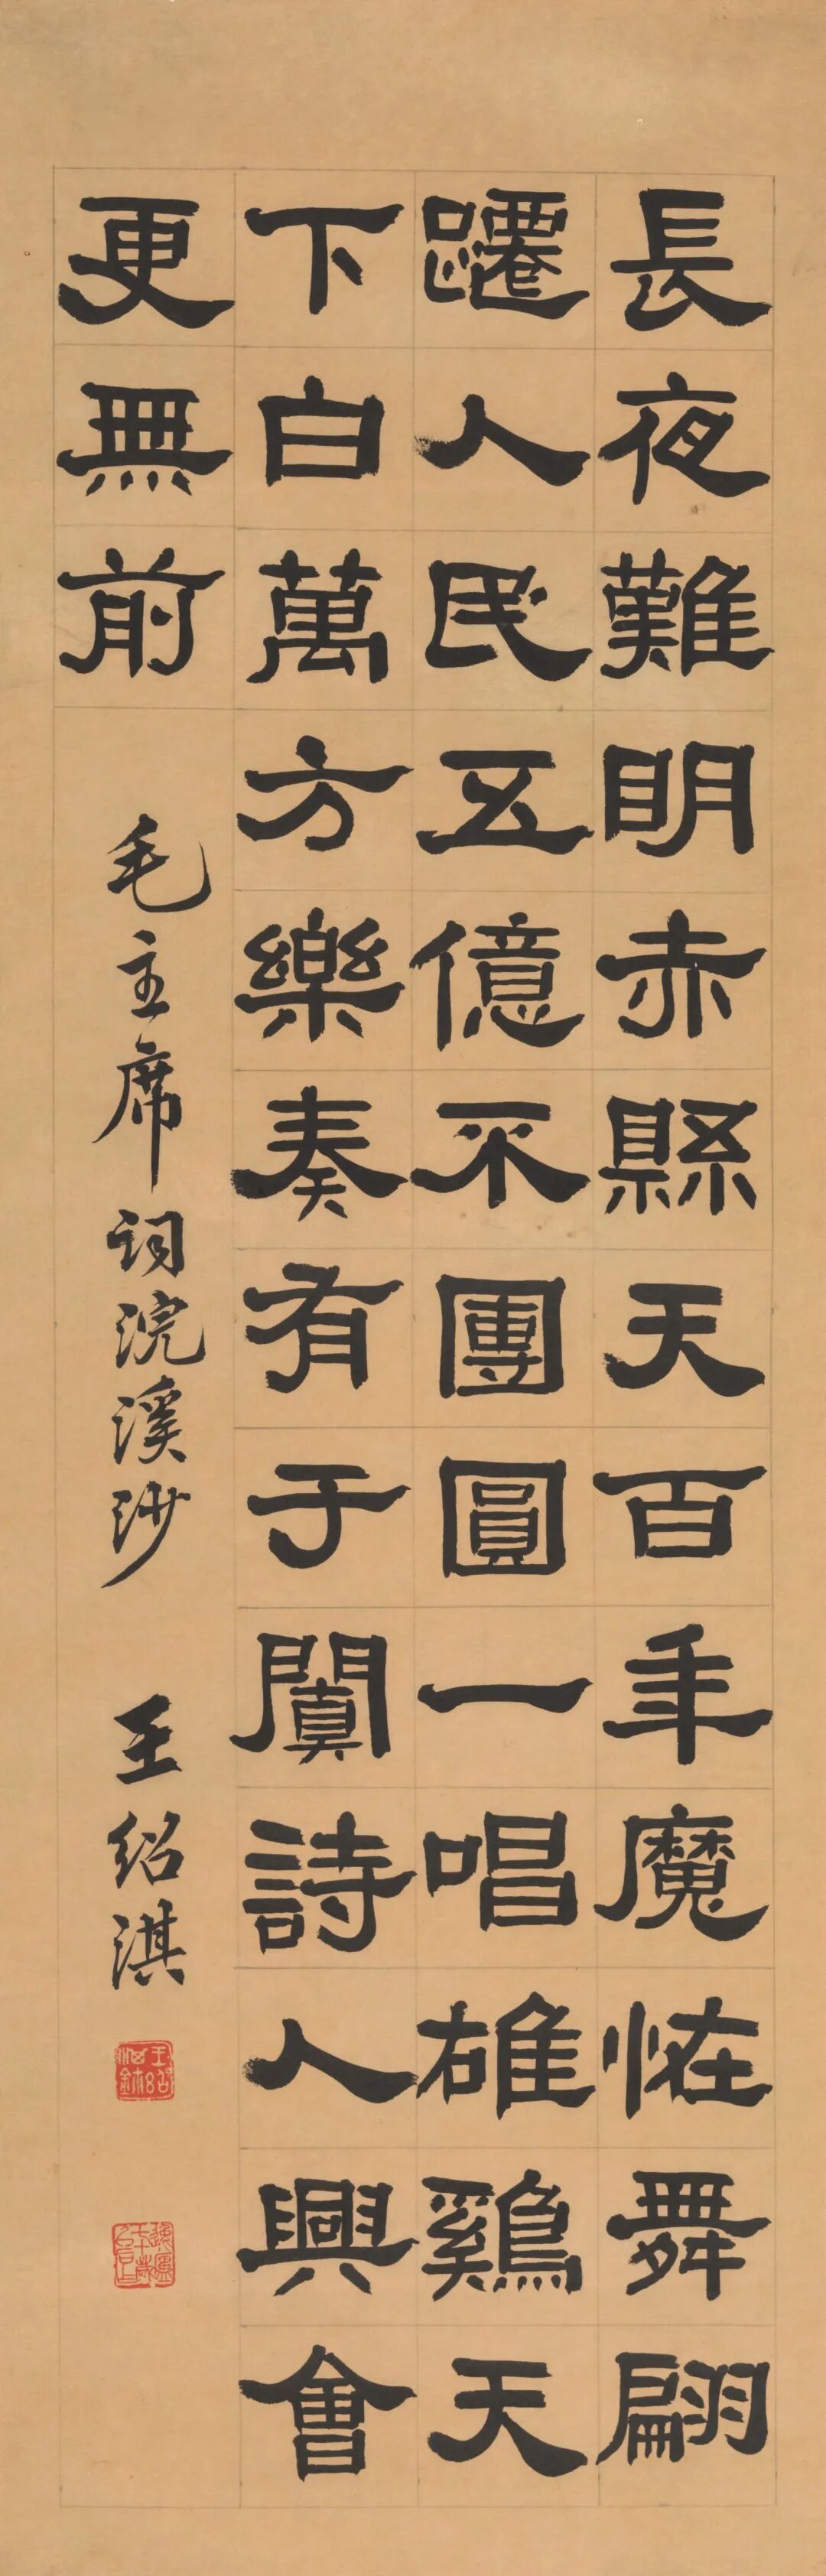 長夜難明赤縣天百年魔怪舞翩
躚人民五億不團圓一唱雄鷄天
下白萬方樂奏有于闐詩人興會
更無前
毛主席词浣溪沙 王绍淇